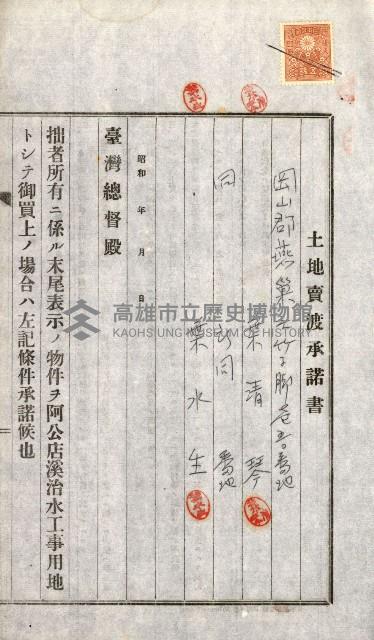 土地賣渡承諾書
岡山郡燕巢庄竹子脚
番地
葉清琴
同
同
番地
葉水生
昭和　年　月　日
臺灣總督殿
拙者所有ニ係ル末尾表示ノ物件ヲ阿公店溪治水工事用地
トシテ御買上ノ場合ハ左記條件承諾候也
高雄市立歷史博物館
KAOHSIUNG MUSEUM OF HISTORY